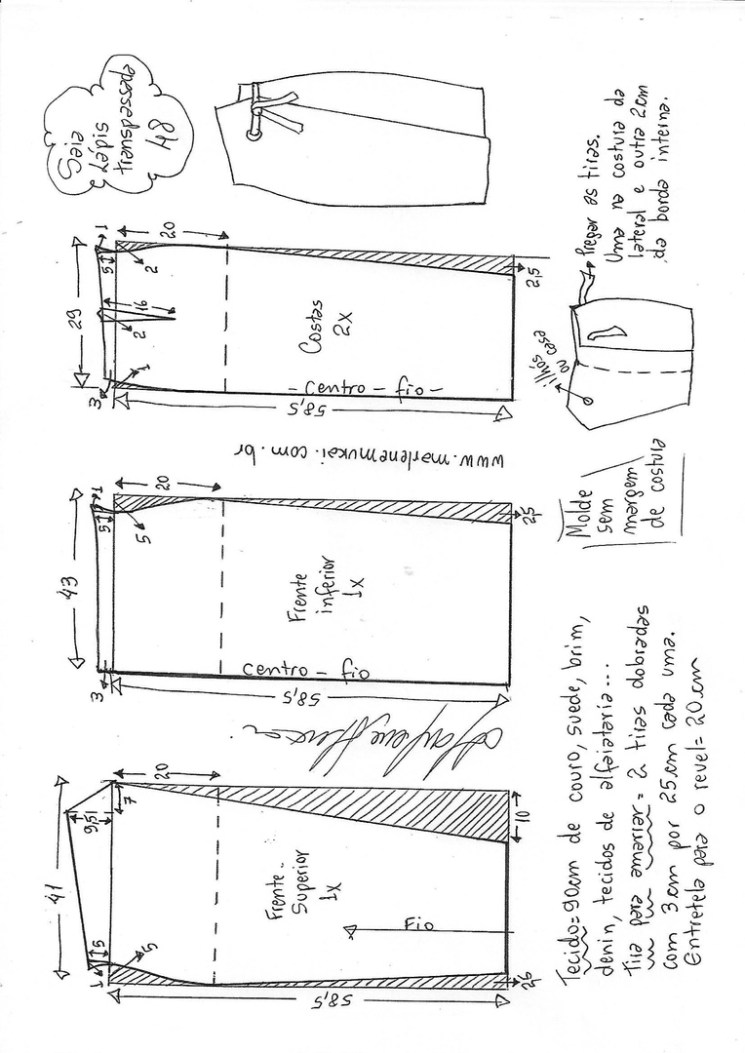 Saia
Lápis
transpassada
48
41
9,5
5
1
5
7
20
58,5
Frente-
Superior
1X
Fio
10
2,5
43
3
5
1
5
20
58,5
Frente
inferior
1X
centro - fio
2,5
www.marlenemukai.com.br
29
3
5
1
1
2
16
2
20
58,5
Costas
2X
- centro - fio -
2,5
Tecido= 90cm de couro, suede, brim,
denin, tecidos de alfaiataria...
Tira para amarrar = 2 tiras dobradas
com 3cm por 25cm cada uma.
Entretela para o revel= 20cm
Molde
sem
margem
de costura
ilhós
ou casa
Pregar as tiras.
Uma na costura da
lateral e outra 2cm
da borda interna.